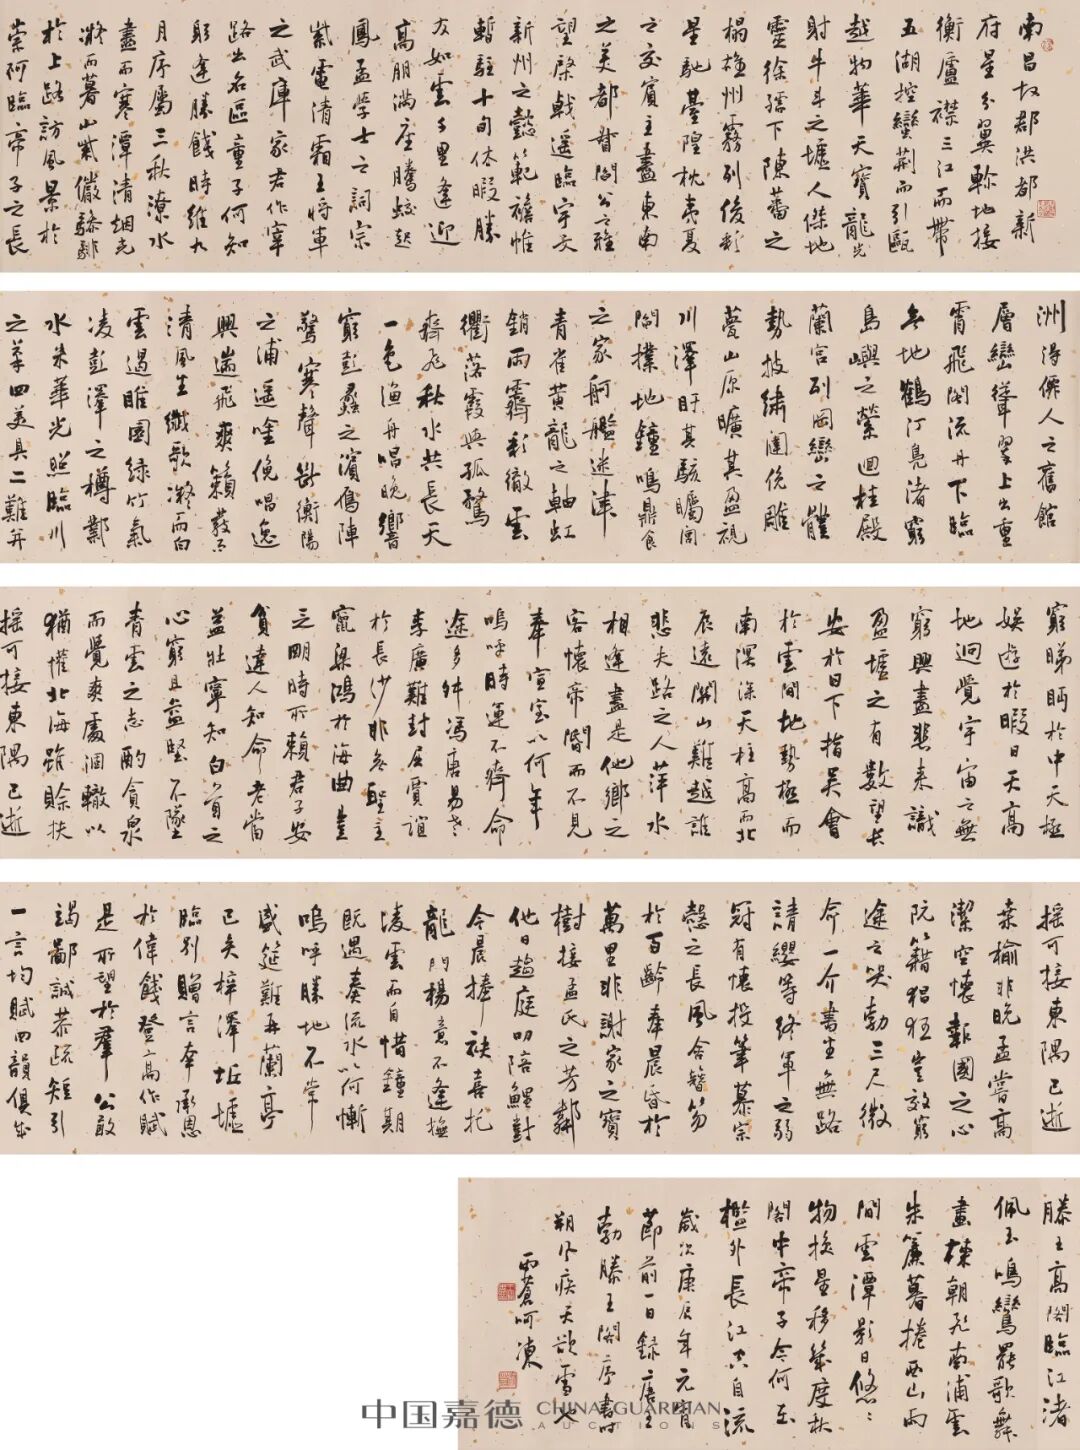 南昌故都洪都新
府星分翼軫地接
衡廬襟三江而帶
五湖控蠻荊而引甌
越物華天寶龍光
射牛斗之墟人傑地
靈徐孺下陳蕃之
榻雄州霧列俊彩
星馳臺隍枕夷夏
之交賓主盡東南
之美都督閻公之雅
望棨戟遙臨宇文
新州之懿範襜帷
暫駐十旬休暇勝
友如雲千里逢迎
高朋滿座騰蛟起
鳳孟學士之詞宗
紫電清霜王將軍
之武庫家君作宰
路出名區童子何知
躬逢勝餞時維九
月序屬三秋潦水
盡而寒潭清烟光
凝而暮山紫儼驂騑
於上路訪風景於
崇阿臨帝子之長
洲得僊人之舊館
層巒聳翠上出重
霄飛閣流丹下臨
無地鶴汀鳧渚窮
島嶼之縈迴桂殿
蘭宮列岡巒之體
勢披繡闥俛雕
甍山原曠其盈視
川澤盱其駭矚閭
閻撲地鐘鳴鼎食
之家舸艦迷津
青雀黃龍之軸虹
銷雨霽彩徹雲
衢落霞與孤騖
齊飛秋水共長天
一色漁舟唱晚響
窮彭蠡之濱雁陣
驚寒聲斷衡陽
之浦遙吟俛唱逸
興遄飛爽籟發而
清風生纖歌凝而白
雲遏睢園綠竹氣
凌彭澤之樽鄴
水朱華光照臨川
之筆四美具二難并
窮睇眄於中天極
娛遊於暇日天高
地迥覺宇宙之無
窮興盡悲來識
盈虛之有數望長
安於日下指吳會
於雲間地勢極而
南溟深天柱高而北
辰遠關山難越誰
悲失路之人萍水
相逢盡是他鄉之
客懷帝閽而不見
奉宣室以何年
嗚呼時運不齊命
途多舛馮唐易老
李廣難封屈賈誼
於長沙非無聖主
竄梁鴻於海曲豈
乏明時所賴君子安
貧達人知命老當
益壯寧知白首之
心窮且益堅不墜
青雲之志酌貪泉
而覺爽處涸轍以
猶懽北海雖賒扶
搖可接東隅已逝
搖可接東隅已逝
桑榆非晚孟嘗高
潔空懷報國之心
阮籍猖狂豈效窮
途之哭勃三尺微
命一介書生無路
請纓等終軍之弱
冠有懷投筆慕宗
愨之長風舍簪笏
於百齡奉晨昏於
萬里非謝家之寶
樹接孟氏之芳鄰
他日趨庭叨陪鯉對
今晨捧袂喜托
龍門楊意不逢撫
凌雲而自惜鐘期
既遇奏流水以何慚
嗚呼勝地不常
盛筵難再蘭亭
已矣梓澤丘墟
臨別贈言幸承恩
於偉餞登高作賦
是所望於羣公敢
竭鄙誠恭疏短引
一言均賦四韻俱成
滕王高閣臨江渚
佩玉鳴鸞罷歌舞
畫棟朝飛南浦雲
朱簾暮捲西山雨
閒雲潭影日悠々
物換星移幾度秋
閣中帝子今何在
檻外長江空自流
歲次庚辰年元宵
節前一日錄唐王
勃滕王閣序書時
朔風疾天欲雪也
雨蒼呵凍
中国嘉德 CHINA GUARDIAN
AUCTIONS